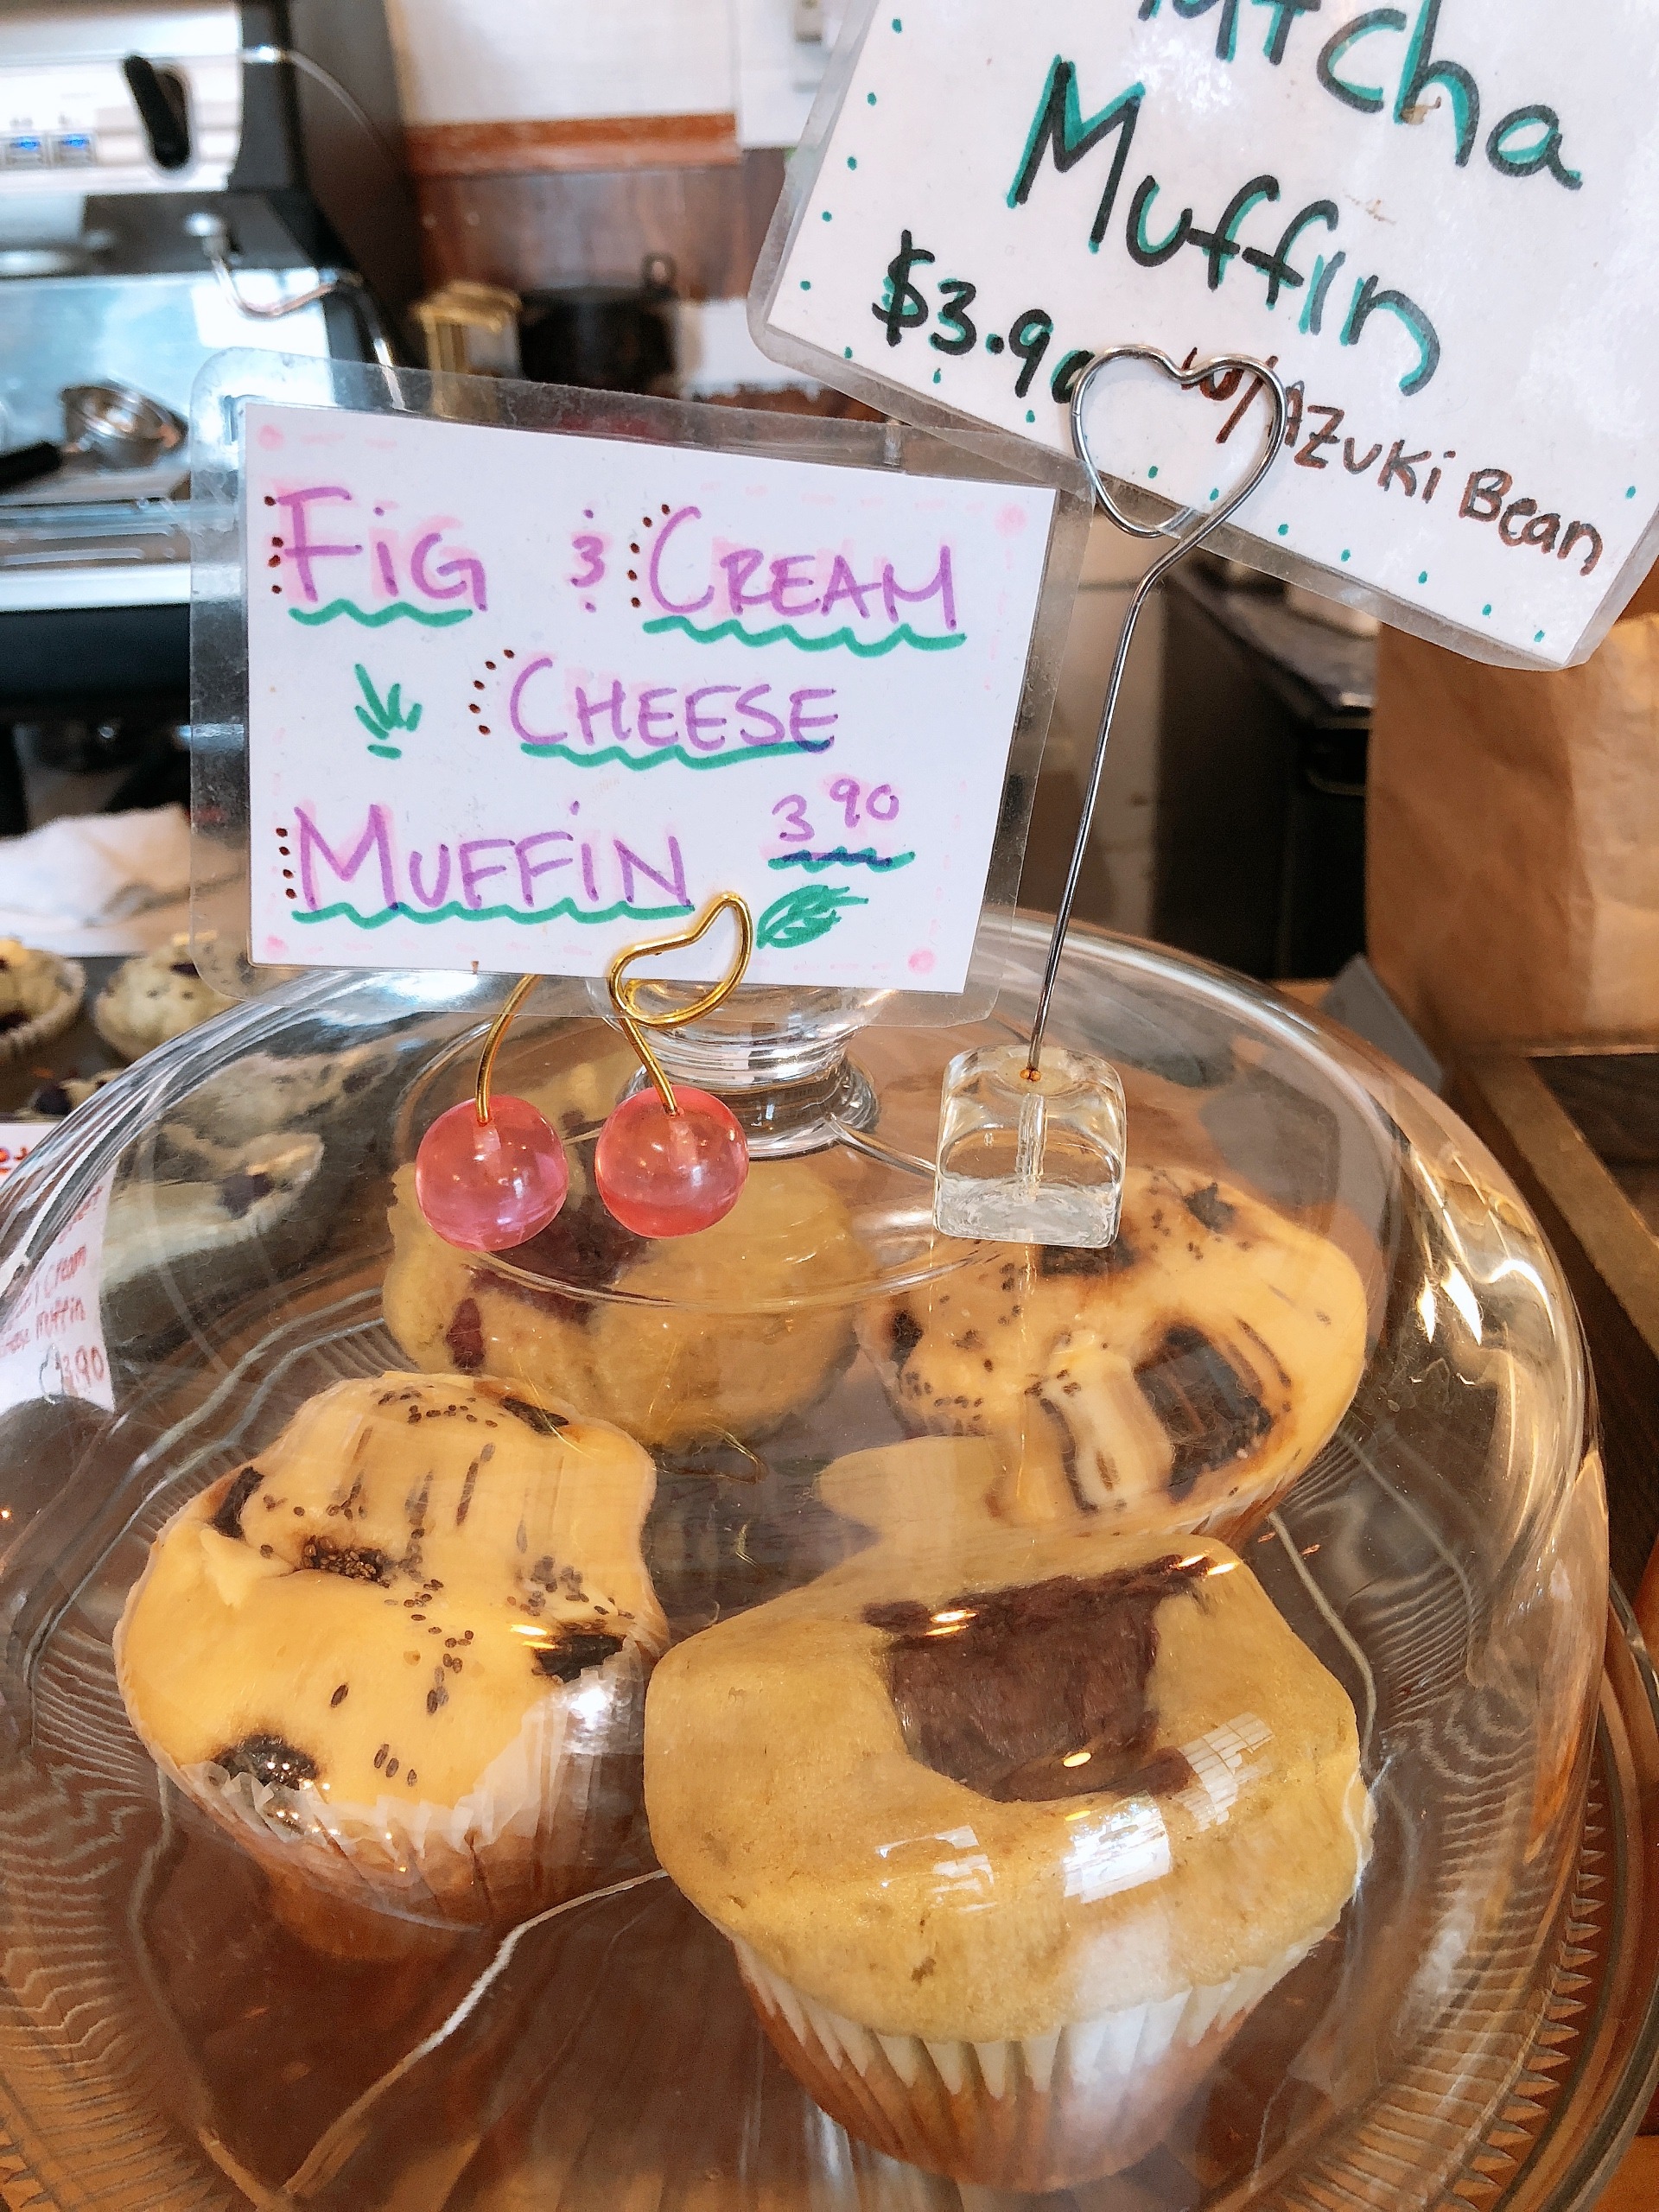 Muffin
$3.90 w/ Azuki Bean
FiG & CREAM
CHEESE
MUFFiN 3 90
Cream
Muffin
3.90